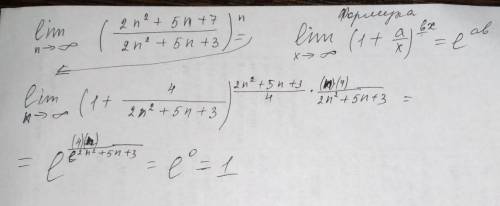 Формула
lim n→∞ ( (2n² + 5n + 7) / (2n² + 5n + 3) )ⁿ =
lim x→∞ (1 + a/x)^(bx) = e^(ab)
lim n→∞ (1 + 4 / (2n² + 5n + 3))^( (2n² + 5n + 3)/4 · (n)(4) / (2n² + 5n + 3) ) =
= e^( (4)(n) / (2n² + 5n + 3) ) = e⁰ = 1